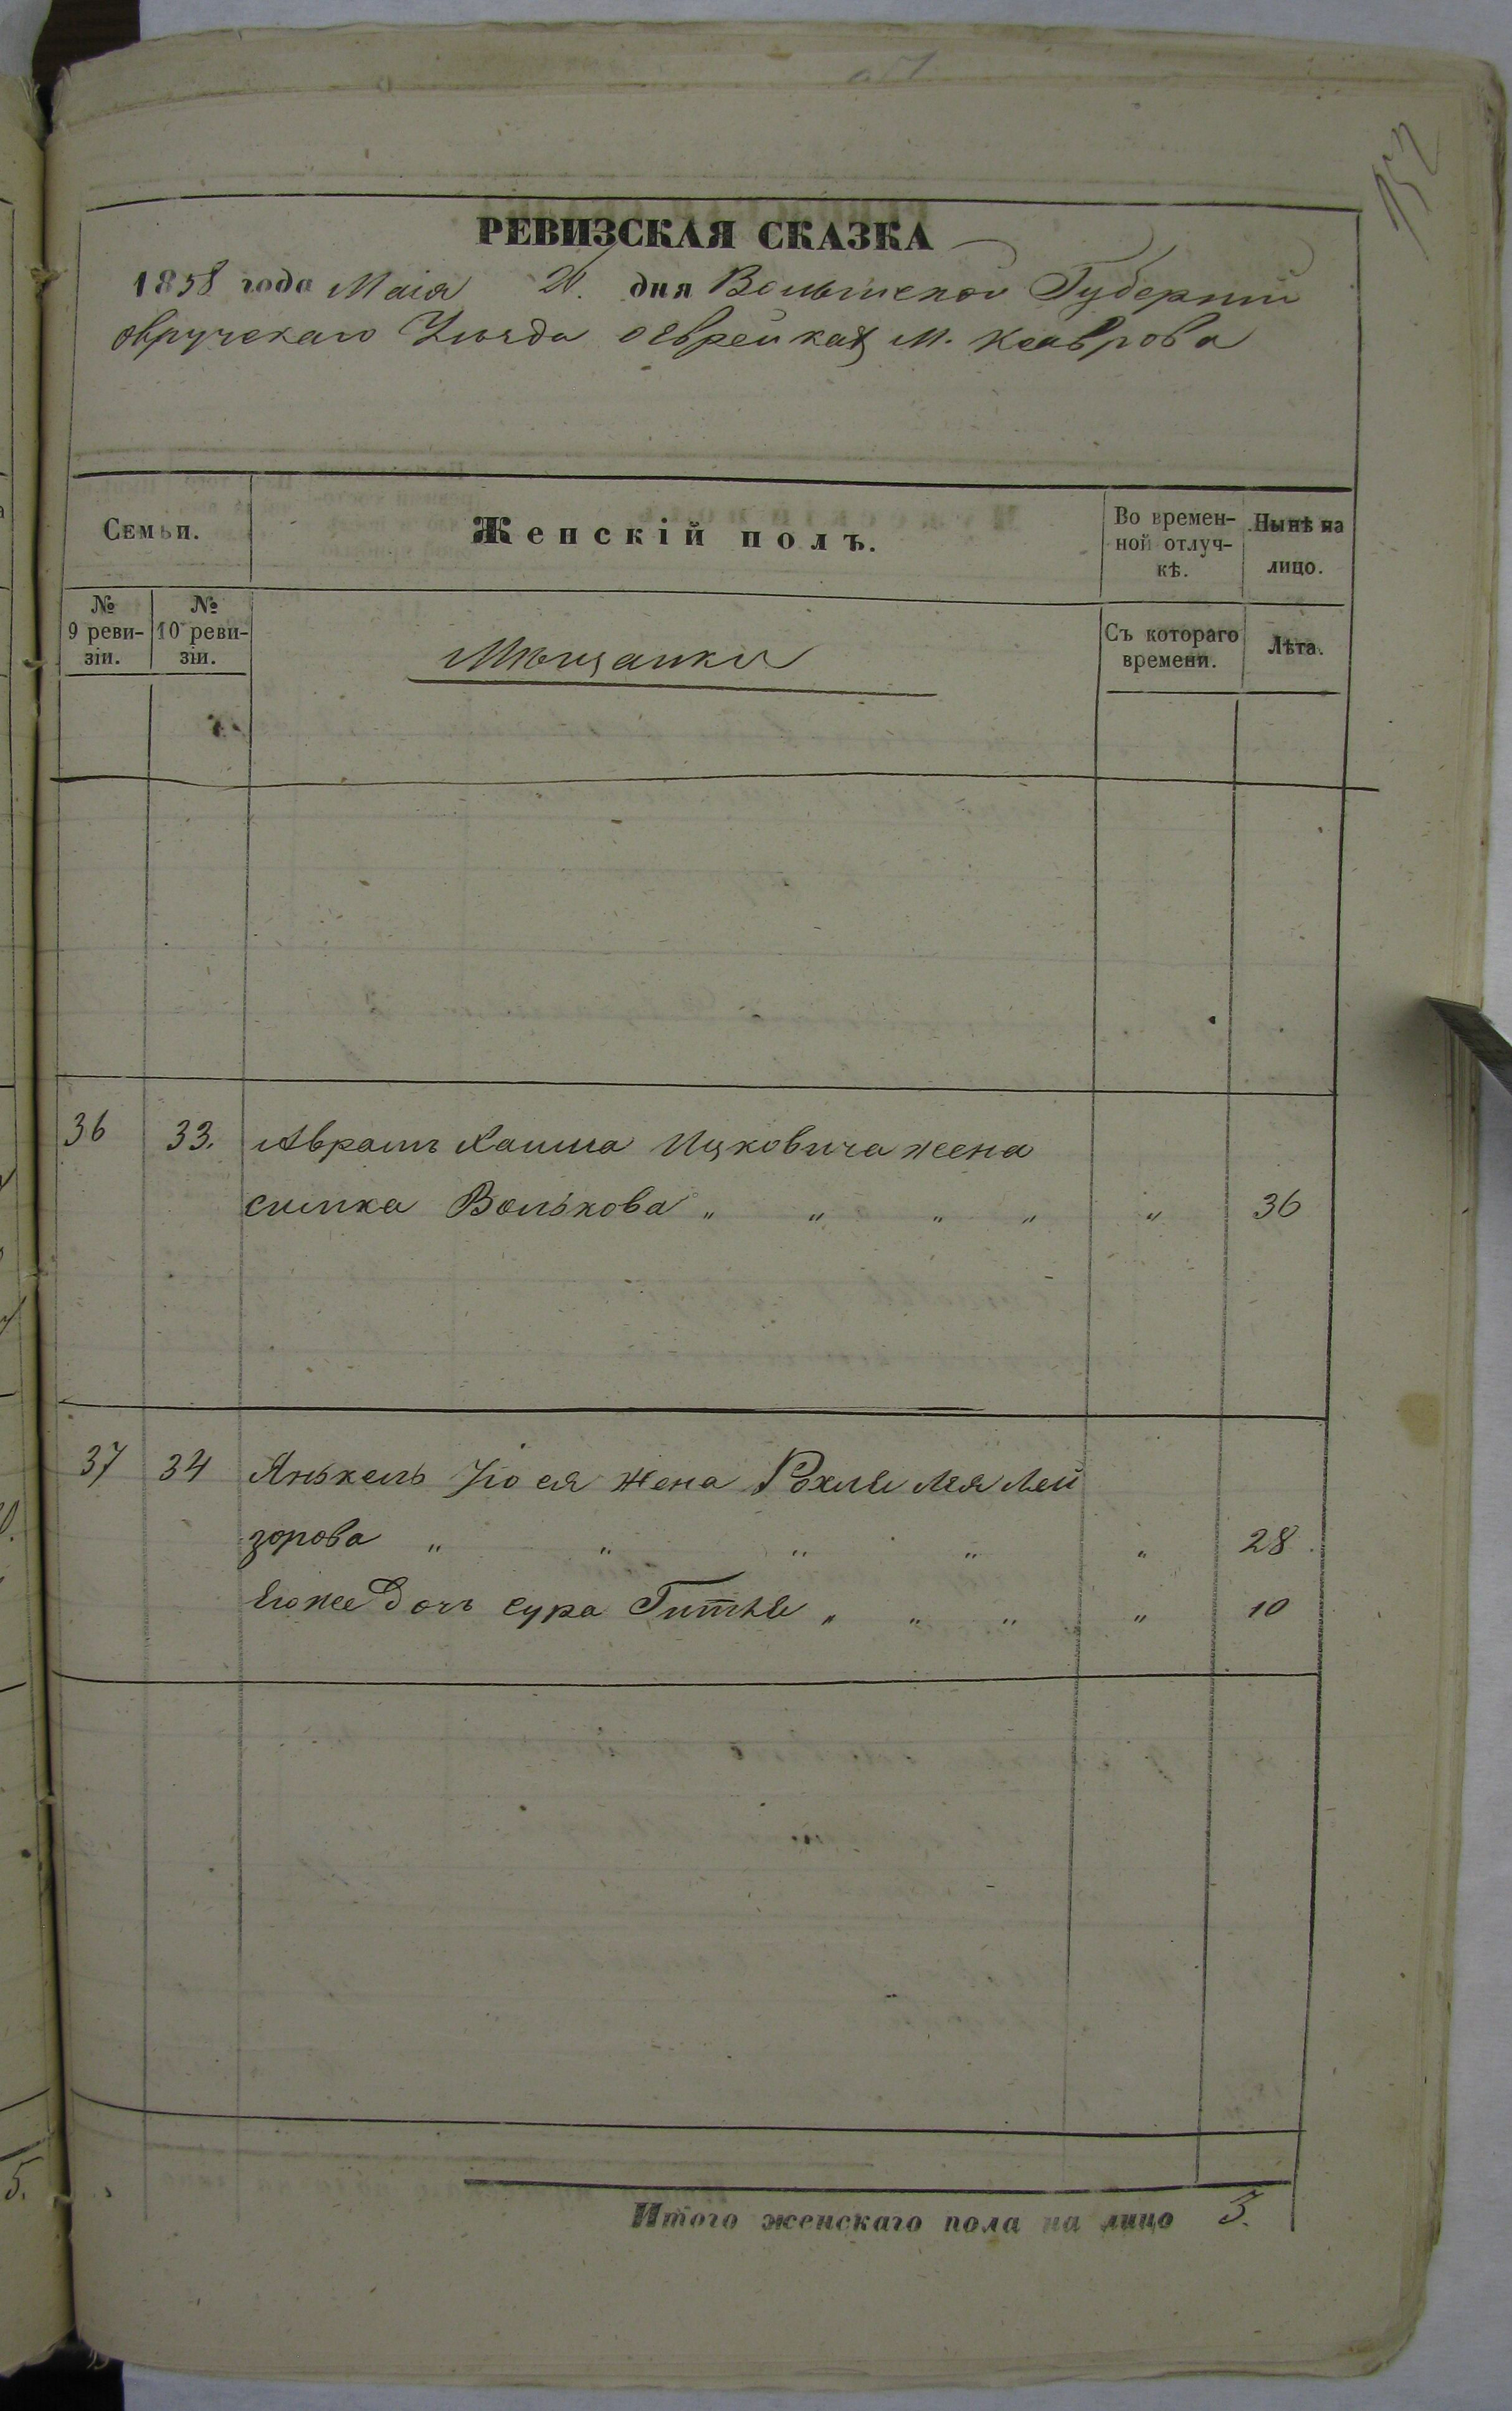 152
РЕВИЗСКАЯ СКАЗКА
1858 года Маія 20. дня Волынской Губерніи
овручскаго Уѣзда о еврейкахъ м. Ксаврова
Семьи.
Женскій полъ.
Во времен-
ной отлуч-
кѣ.
Нынѣ на
лицо.
№
9 реви-
зіи.
№
10 реви-
зіи.
Мѣщанки
Съ котораго
времени.
Лѣта.
36 33. Аврамъ Хаима Ицковича жена
симка Волькова " " " " " 36
37 34 Янькель жена Рохля Лея Лей
зорова " " " " " 28
Его же дочь сура Гитля " " " " 10
Итого женскаго пола на лицо 3.